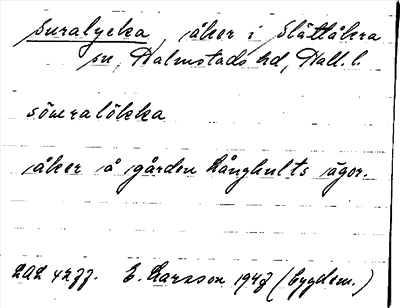 Suralycka, åker i Slättåkra
sn, Halmstads hd, Hall. l.
sŏuralŏkka
åker å gården Långhults ägor.
LAL 4277. E. Larsson 1947 (bygdem.)